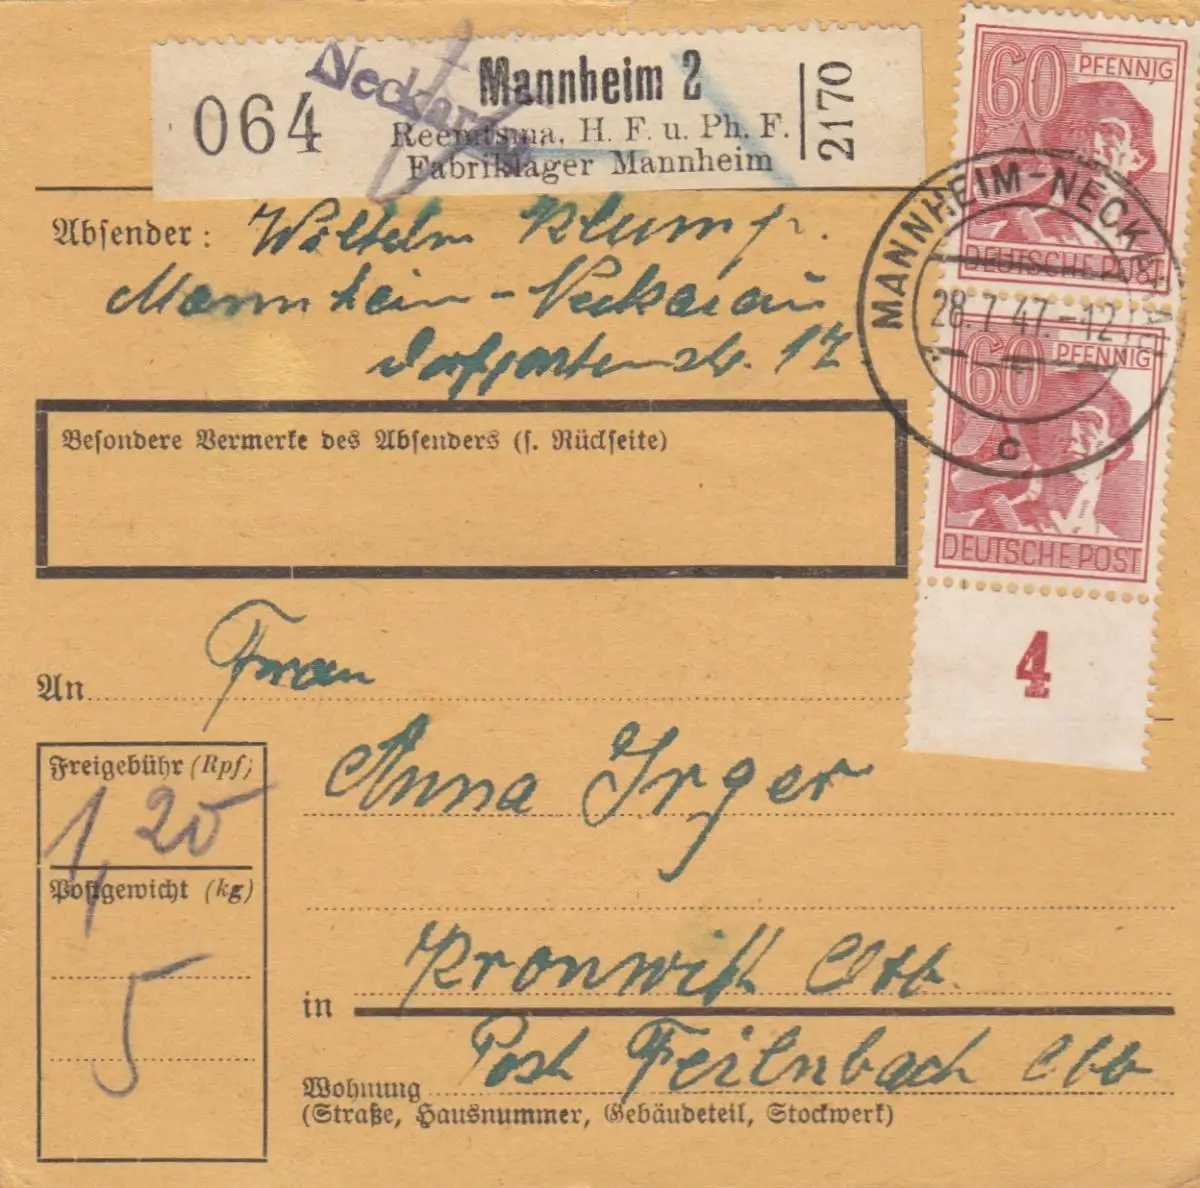 Mannheim 2
064
Reemtsma, H. F. u. Ph. F.
Fabriklager Mannheim
2170
Neckarau
60 PFENNIG
DEUTSCHE POST
MANNHEIM-NECKARAU
28.7.47.-12
c
60 PFENNIG
DEUTSCHE POST
4
Absender: Wilhelm Klump.
Mannheim-Neckarau
Dorfgartenstr. 17
Besondere Vermerke des Absenders (s. Rückseite)
An Frau
Anna Irger
Freigebühr (Rpf)
1,20
Postgewicht (kg)
5
in Kronwitt Obb.
Post Feilnbach Obb
Wohnung
(Straße, Hausnummer, Gebäudeteil, Stockwerk)